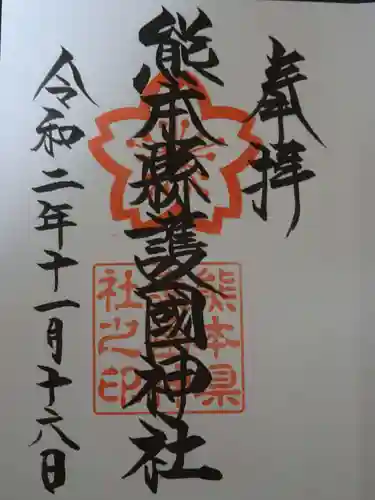 奉拝
熊本縣護國神社
熊本県護国神社之印
令和二年十一月十六日